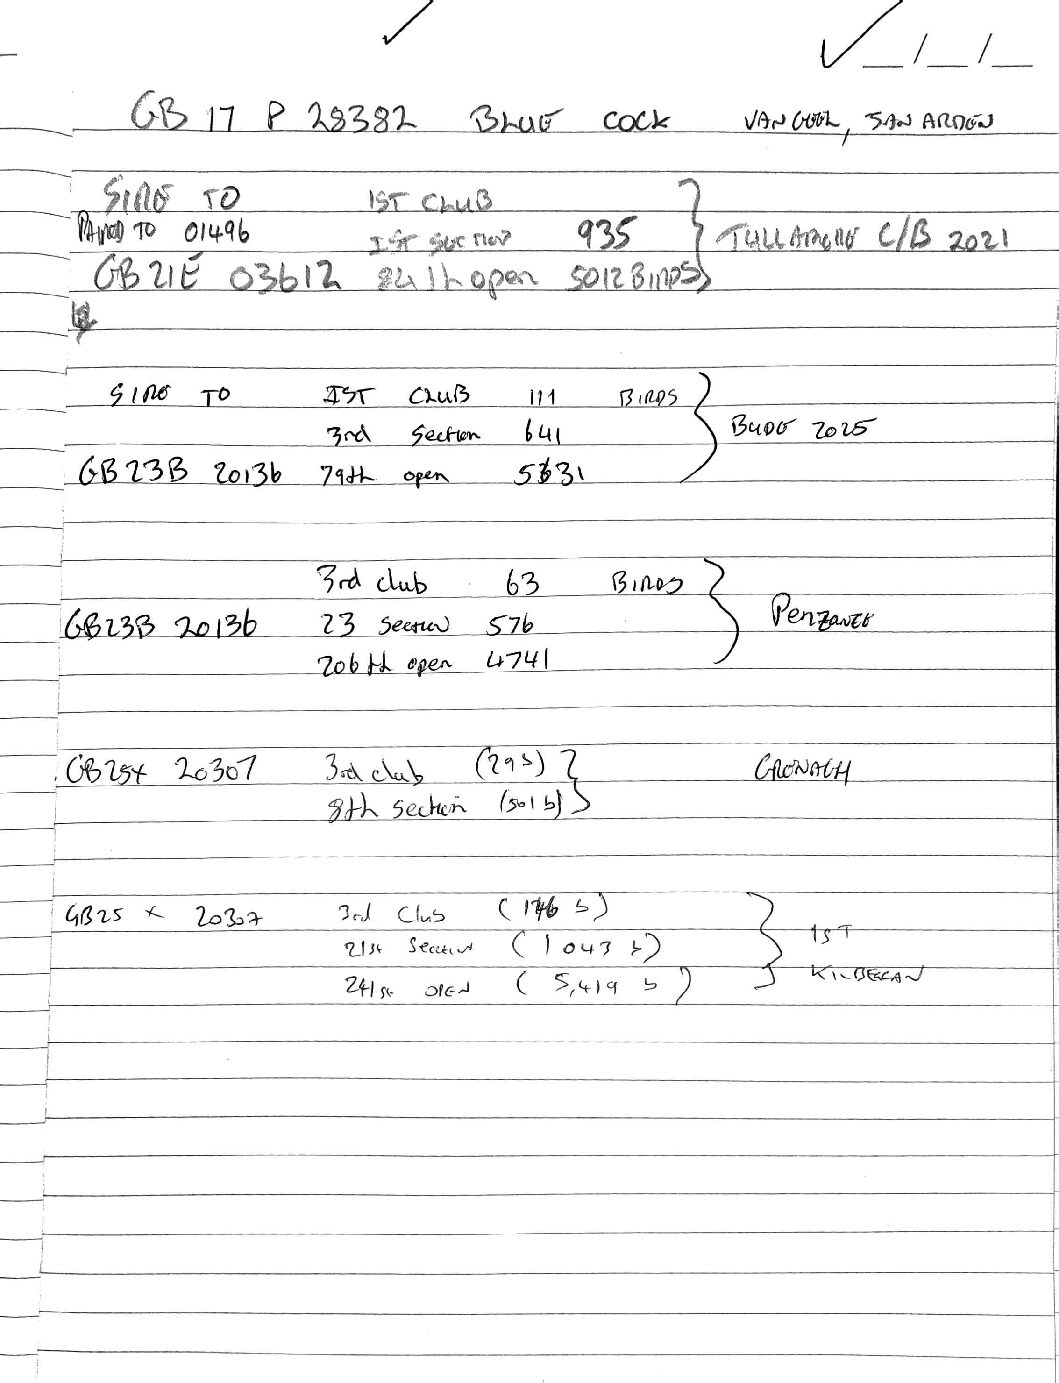 __/__/__
GB 17 P 28382 BLUE COCK VAN GEEL, JAN ARDEN
SIRE TO 1ST CLUB
PAIRED TO 01496 1ST SECTION 935 TULLAMORE C/B 2021
GB 21E 03612 84th open 5012 BIRDS
SIRE TO 1ST CLUB 111 BIRDS
3rd Section 641 BUDE 2025
GB23B 20136 79th open 5631
3rd club 63 BIRDS
GB23B 20136 23 Section 576 Penzance
206th open 4741
GB25X 20307 3rd club (29 b) CRONAGH
8th Section (501 b)
GB25 X 20307 3rd Club (146 b)
21st Section (1043 b) 1ST
241st OPEN (5,419 b) KILBEGGAN